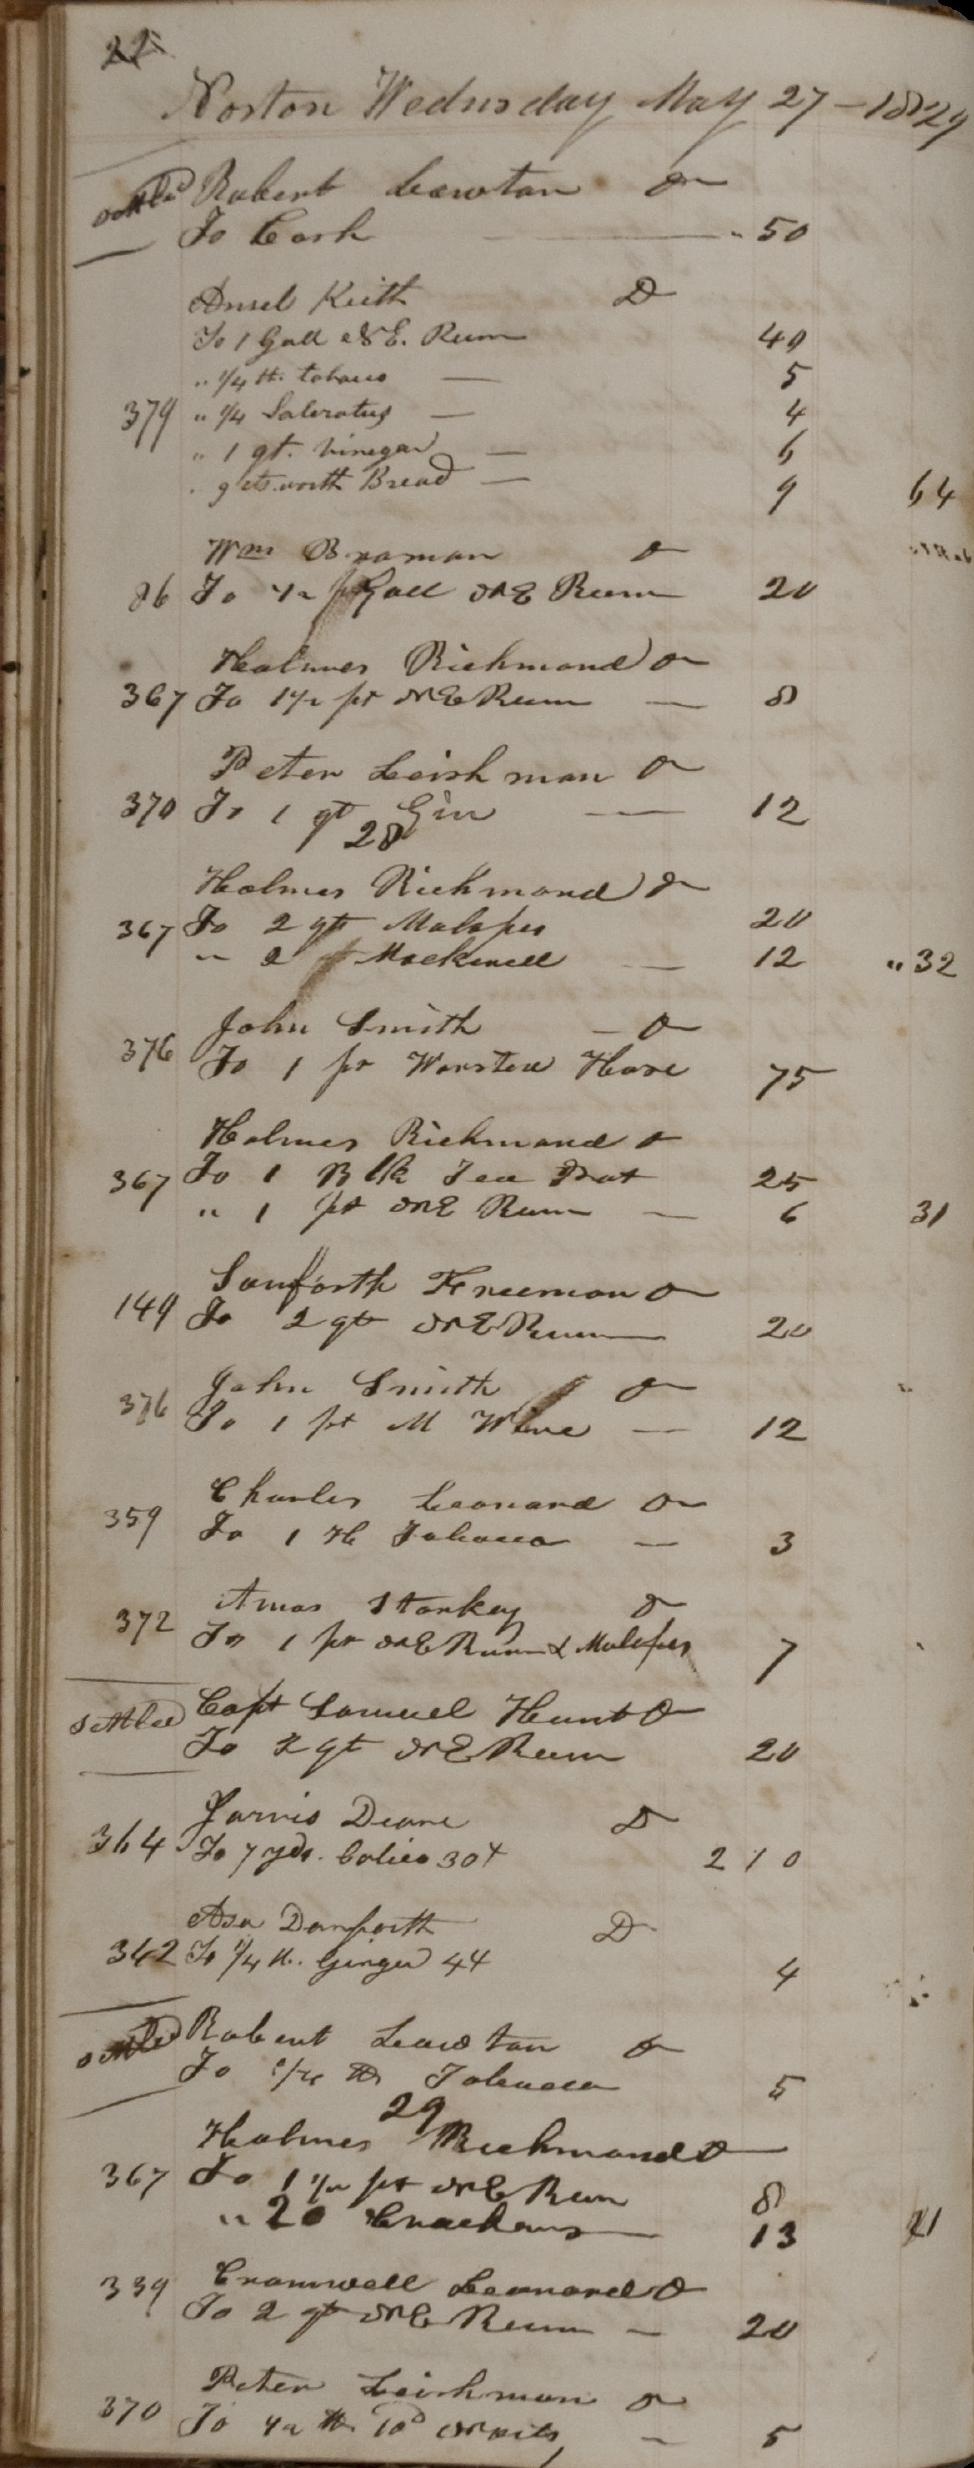 22
Norton Wednesday May 27 - 1829
settled Robert Lawton Dr
To Cash " 50
Ansel Keith Dr
To 1 Gall N.E. Rum 40
" 1/4 lb. tobacco 5
379 " 1/4 Saleratus 4
" 1 qt. Vinegar 6
" 9 cts worth Bread 9 64
Wm Braman Dr
86 To 1/2 Gall N E Rum 20
Holmes Richmond Dr
367 To 1 1/2 pt N E Rum 8
Peter Leishman Dr
370 To 1 qt Gin 12
28
Holmes Richmond Dr
367 To 2 qts Molasses 20
" 2 Mackerell 12 " 32
John Smith Dr
376 To 1 pr Worsted Hose 75
Holmes Richmond Dr
367 To 1 Blk Tea Pot 25
" 1 pt N E Rum 6 31
Sanforth Freeman Dr
149 To 2 qts N E Rum 20
John Smith Dr
376 To 1 pt M Wine 12
Charles Leonard Dr
359 To 1 Tobacco 3
Amos Starkey Dr
372 To 1 pt N E Rum & Molasses 7
settled Capt Samuel Hunt Dr
To 2 qt N E Rum 20
Jarvis Deane Dr
364 To 7 yds. Calico 30 2 10
Asa Danforth Dr
342 To 1/4 lb. Ginger 4
settled Robert Lawton Dr
To 1/4 lb Tobacco 5
29
Holmes Richmond Dr
367 To 1 1/2 pt N E Rum 8
" 20 Crackers 13 21
Cromwell Leonard Dr
339 To 2 qt N E Rum 20
Peter Leishman Dr
370 To 1/2 lb 10d Nails 5